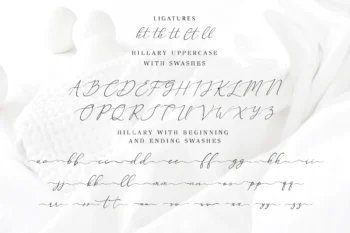 LIGATURES
kt th tt lt ll
HILLARY UPPERCASE
WITH SWASHES
A B C D E F G H I J K L M N
O P Q R S T U V W X Y Z
HILLARY WITH BEGINNING
AND ENDING SWASHES
aa bb cc dd ee ff gg hh ii
jj kk ll mm nn oo pp qq
rr ss tt uu vv ww xx yy zz